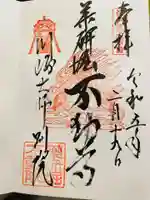 奉拝
令和五年
二月十六日
薬研堀
不動尊
川崎大師別院